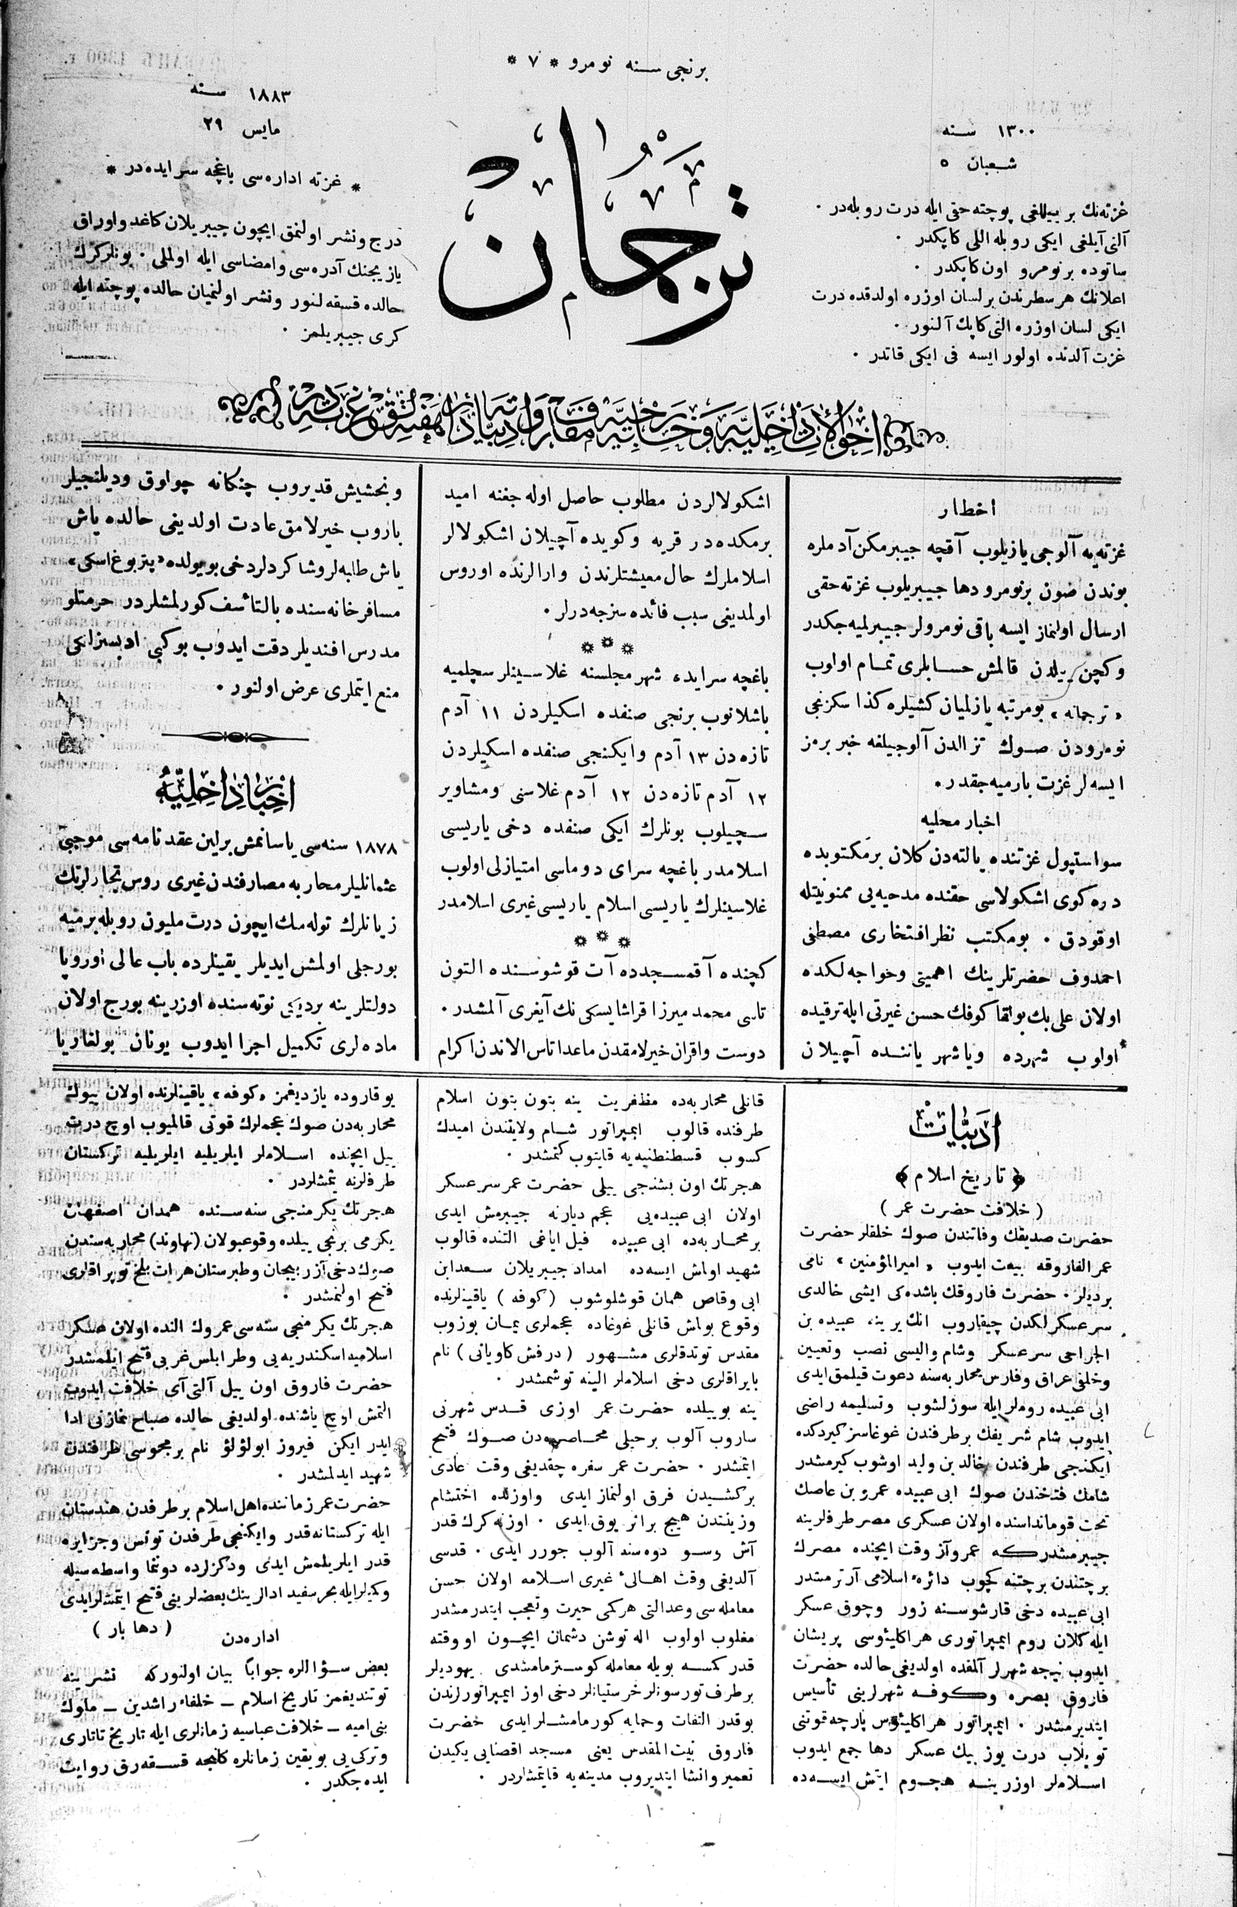 برنجی سنه نومرو * ٧ *
١٣٠٠ سنه
شعبان ٥
غزته‌نك بر ییللغی پوچته حقی ایله درت روبله‌در ·
آلتی آیلغی ایكی روبله اللی كاپكدر ·
ساتوده بر نومرو اون كاپكدر ·
اعلانك هر سطرندن بر لسان اوزره اولدقده درت
ایكی لسان اوزره التی كاپك آلنور ·
غزت آلدنده اولور ایسه فی ایكی قاتدر ·
ترجمان
١٨٨٣ سنه
مایس ٢٩
* غزته اداره‌سی باغچه سرایده‌در *
درج ونشر اولنمق ایچون جیبریلان كاغد واوراق
یازیجنك آدره‌سی وامضاسی ایله اولملی · بونلركرك
حالده قسقه‌لنور ونشر اولنمیان حالده پوچته ایله
كری جیبریلمز ·
اخطار
غزته‌یه آلوجی یازیلوب آقچه جیبرمكن آدملره
بوندن ضون برنومرو دها جیبریلوب غزته حقی
ارسال اولنماز ایسه باقی نومرولر جیبرلمیه‌جكدر
وكچن ییلدن قالمش حسابلری تمام اولوب
«ترجمانه» بومرتبه یازلمیان كشیلره كذا سكزنجی
نومرودن صوك تزالدن آلوجیلغه خبر برمز
ایسه‌لر غزت بارمیه‌جقدر ·
اخبار محلیه
سواستپول غزتنده یالته‌دن كلان برمكتوبده
دره‌كوی اشكولاسی حقنده مدحیه‌یی ممنونیتله
اوقودق · بومكتب نظر افتخاری مصطفی
احمدوف حضرتلرینك اهمیتی وخواجه‌لكده
اولان علی بك بولتقا كوفك حسن غیرتی ایله ترقیده
اولوب شهرده ویا شهر یاننده آچیلان
اشكولالردن مطلوب حاصل اوله‌جغنه امید
برمكده‌در قریه وكویده آچیلان اشكولالر
اسلاملرك حال معیشتلرندن وارالرنده اوروس
اولمدیغی سبب فائده سنزجه‌درلر ·
باغچه سرایده شهر مجلسنه غلاسینلر سچلمیه
باشلانوب برنجی صنفده اسكیلردن ١١ آدم
تازه‌دن ١٣ آدم وایكنجی صنفده اسكیلردن
١٢ آدم تازه‌دن ١٢ آدم غلاسنی ومشاویر
سچیلوب بونلرك ایكی صنفده دخی یاریسی
اسلامدر باغچه سرای دوماسی امتیازلی اولوب
غلاسینلرك یاریسی اسلام یاریسی غیری اسلامدر
كچنده آقمسجدده آت قوشوسنده التون
تاسی محمد میرزا قراشایسكی نك آیغری آلمشدر ·
دوست واقران خیرلامقدن ماعدا تاس الاندن اكرام
وبخشیش قدیروب چنكانه چواوق ودیلنجیلر
باروب خیرلامق عادت اولدیغی حالده یاش
یاش طلبه‌لروشاكردلردخی بویولده «پتربوغ اسكی»
مسافرخانه‌سنده بالتأسف كورلمشلردر حرمتلو
مدرس افندیلر دقت ایدوب بوكبی ادبسزلكی
منع ایتملری عرض اولنور ·
اخبار داخلیه
١٨٧٨ سنه‌سی یاسانمش برلین عقدنامه‌سی موجبی
عثمانلیلر محاربه مصارفندن غیری روس تجارلرنك
زیانلرك توله‌مك ایچون درت ملیون روبله برمیه
بورجلی اولمشن ایدیلر یقینلرده باب عالی اوروپا
دولتلرینه بردیكی نوته‌سنده اوزرینه بورج اولان
ماده‌لری تكمیل اجرا ایدوب یونان بولغاریا
ادبیات
﴿ تاریخ اسلام ﴾
( خلافت حضرت عمر )
حضرت صدیقك وفاتندن صوك خلقلر حضرت
عمر الفاروقه بیعت ایدوب «امیرالمؤمنین» نامی
بردیلر · حضرت فاروقك باشده‌كی ایشی خالدی
سرعسكرلكدن چیقاروب انك یرینه عبیده بن
الجراحی سرعسكر وشام والیسی نصب وتعیین
وخلفی عراق وفارس محاربه‌سنه دعوت قیلمق ایدی
ابی عبیده روملر ایله سوزلشوب وتسلیمه راضی
ایدوب شام شریفك برطرفندن غوغاسز كیردكده
ایكنجی طرفندن خالد بن ولید اوشوب كیرمشدر
شامك فتحندن صوك ابی عبیده عمرو بن عاصك
تحت قومانداسنده اولان عسكری مصر طرفلرینه
جیبرمشدركه عمرو آز وقت ایچنده مصرك
برچتندن برچتنه كچوب دائره اسلامی آرترمشدر
ابی عبیده دخی قارشوسنه زور وچوق عسكر
ایله كلان روم ایمپراتوری هراكلیؤسی پریشان
ایدوب نیچه شهرلر آلمقده اولدیغی حالده حضرت
فاروق بصره وكوفه شهرلرینی تأسیس
ایتدیرمشدر · ایمپراتور هراكلیؤس پارچه قوتنی
توپلاب درت یوز بیك عسكر دها جمع ایدوب
اسلاملر اوزرینه هجوم ایتش ایسه‌ده
قانلی محاربه‌ده مظفریت ینه بتون بتون اسلام
طرفنده قالوب ایمپراتور شام ولایتندن امیدك
كسوب قسطنطنیه‌یه قایتوب كتمشدر ·
هجرتك اون بشنجی ییلی حضرت عمر سرعسكر
اولان ابی عبیده‌یی عجم دیارنه جیبرمش ایدی
بر محاربه‌ده ابی عبیده فیل ایاغی التنده قالوب
شهید اولمش ایسه‌ده امداد جیبریلان سعد ابن
ابی وقاص همان قوشلوشوب (كوفه) یاقینلرنده
وقوع بولمش قانلی غوغاده عجملری یمان بوزوب
مقدس توتدقلری مشهور (درفش كاویانی) نام
بایراقلری دخی اسلاملر الینه توشمشدر ·
ینه بوییلده حضرت عمر اوزی قدس شهرنی
ساروب آلوب برحیلی محاصره‌دن صوك فتح
ایتمشدر · حضرت عمر سفره چقدیغی وقت عادی
بركشیدن فرق اولنماز ایدی واوزلده احتشام
وزینتدن هیچ براثر یوق ایدی · اوزنه كرك قدر
آش وسو دوه‌سنه آلوب جورر ایدی · قدسی
آلدیغی وقت اهالئ غیری اسلامه اولان حسن
معامله‌سی وعدالتی هركمی حیرت وتعجب ایتدرمشدر
مغلوب اولوب اله توشن دشمان ایچون اووقته
قدر كمسه بویله معامله كوسترمامشدی یهودیلر
برطرف تورسونلر خرستیانلر دخی اوز ایمپراتورلرندن
بوقدر التفات وحمایه كورمامشلر ایدی حضرت
فاروق بیت المقدس یعنی مسجد اقصایی یكیدن
تعمیر وانشا ایتدیروب مدینه‌یه قایتمشلردر ·
یوقاروده یازدیغمز «كوفه» یاقینلرنده اولان بیوك
محاربه‌دن صوك عجملرك قوتی قالمیوب اوچ درت
ییل ایچنده اسلاملر ایلریلیه ایلریلیه تركستان
طرفلرنه یتمشلردر ·
هجرتك یكرمنجی سنه‌سنده همدان اصفهان
یكرمی برنجی ییلده وقوعبولان (نهاوند) محاربه‌سندن
صوك دخی آزربیجان وطبرستان هرات بلخ توپراقلری
فتح اولنمشدر ·
هجرتك یكرمنجی سنه‌سی عمروك النده اولان عسكر
اسلامیه اسكندریه‌یی وطرابلس غربی فتح ایلمشدر
حضرت فاروق اون ییل آلتی آی خلافت ایدوب
التمش اوچ یاشنده اولدیغی حالده صباح نمازنی ادا
ایدر ایكن فیروز ابولؤلؤ نام برمجوسی طرفندن
شهید ایدلمشدر ·
حضرت عمر زماننده اهل اسلام برطرفدن هندستان
ایله تركستانه قدر وایكنجی طرفدن تونس وجزایره
قدر ایلریلمش ایدی ودكزلرده دونما واسطه‌سیله
وكمیلر ایله بحرسفید ادالرینك بعضه‌لرینی فتح ایتمشلرایدی
( دها بار )
اداره‌دن
بعض سؤاللره جواباً بیان اولنوركه نشرینه
توتندیغمز تاریخ اسلام — خلفاء راشدین — ملوك
بنی امیه — خلافت عباسیه زمانلری ایله تاریخ تاتاری
وتركی‌یی بویقین زمانلره كلنجه قسقه‌رق روایت
ایده‌جكدر ·